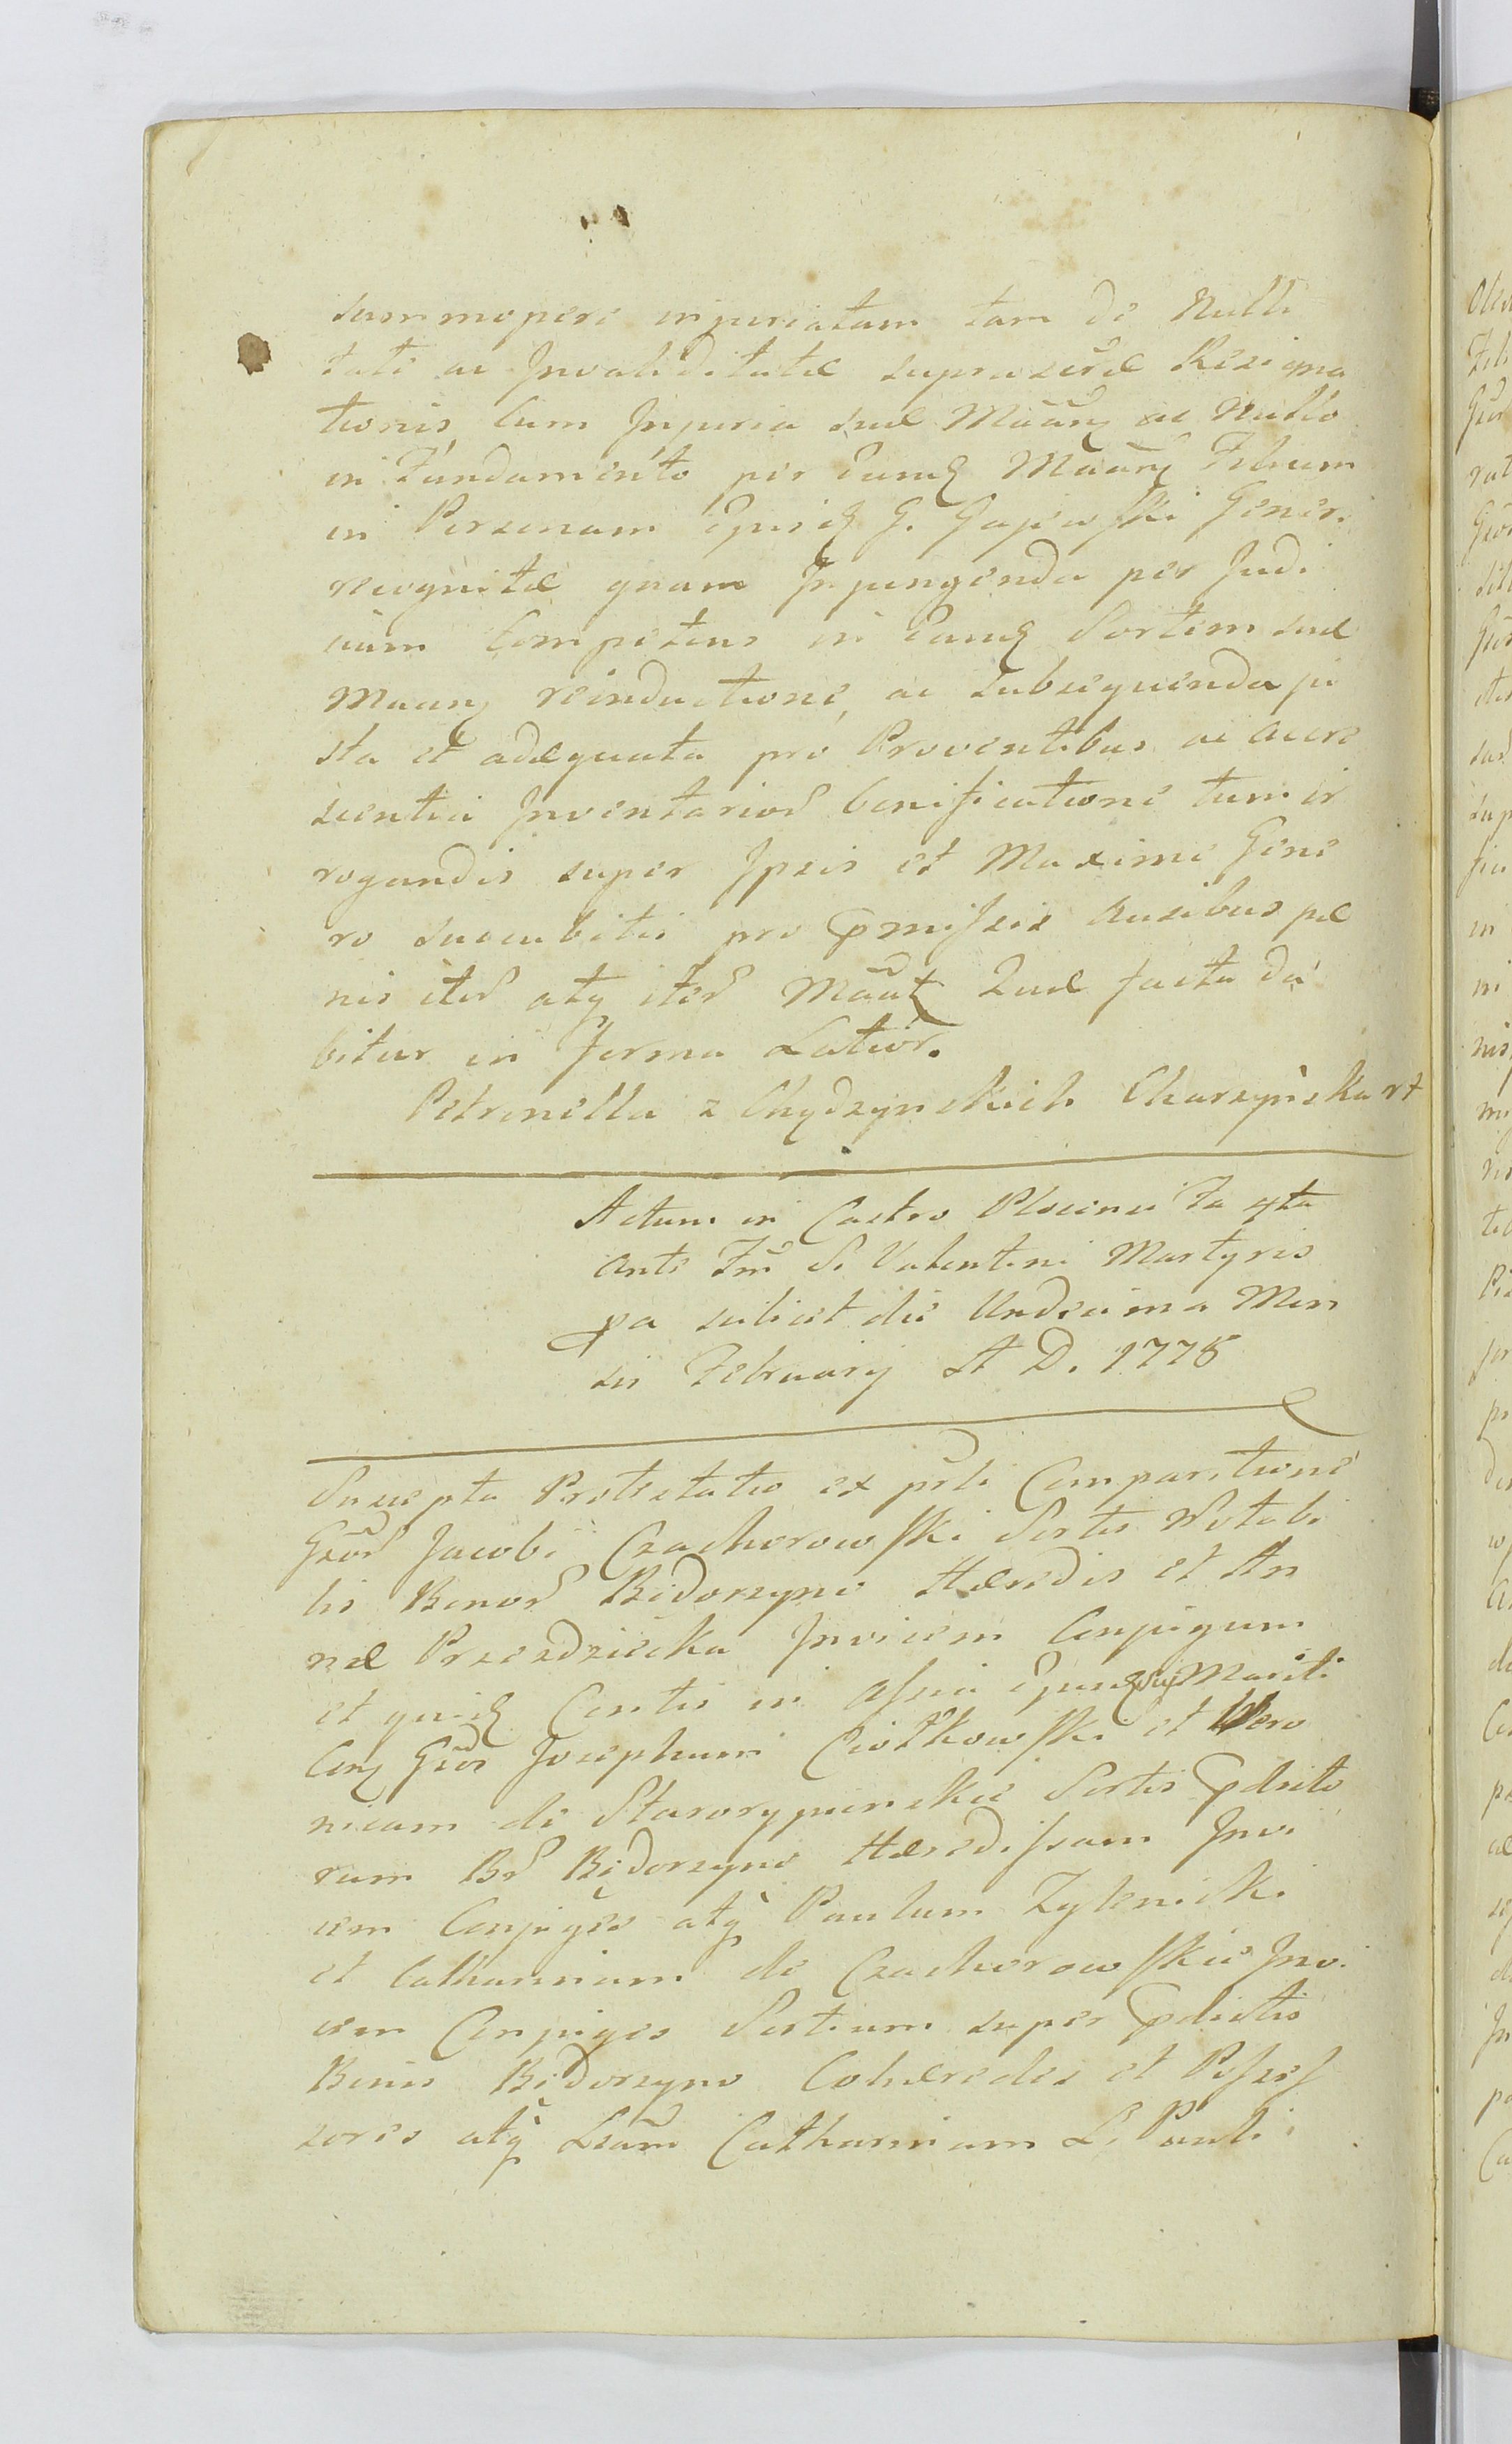 summopere injuriatam tam de Nulli
tate ac Invaliditatæ suprascrtæ Resigna
tionis cum Injuria suæ Maanz ac Nullo
in Fundamento per eamq Maanz Filium
in Personam ejusq G. Gajewski Gener.
recognitæ quam Injungenda per Judi
cium Competens in eamq Sortem suæ
Maanz reinductione, ac subsequenda ju
sta et adæquata pro Proventibus ac accre
scentia Inventarior bonificatione tum ir
rogandis super Ipsis et Maxime Gene
ro succubitis pro pmissis Ausibus pæ
nis iter atq iter Maat Quæ facta da
bitur in forma Latior.
Petronella z Chydzynskich Charzynska rt
Actum in Castro Plocensi Fa 4ta
ante Fm S. Valentini Martyris
pa scilicet die Undecima Men
sis February A D. 1778
Suscepta Protestatio ex prli Comparitione
Gsor Jacobi Czachorowski Sortis Notabi
lis Bonor Bidorzyno Hæredis et An
næ Przezdziecka Invicem Conjugum
et quidq Contis in Assia Ejusq sui Mariti
Conz Gsos Josephum Ciołkowski et Vero
nicam de Starorypinskie Sortis pdicto
rum Br Bidorzyno Hæredissam Invi
cem Conjuges atq Paulum Zylenicki
et Catharinam de Czachorowskie Invi
cem Conjuges Sortium super pdictis
Bonis Bidorzyno Cohæredes et Possess
sores atq Lsam Catharinam L. Pauli